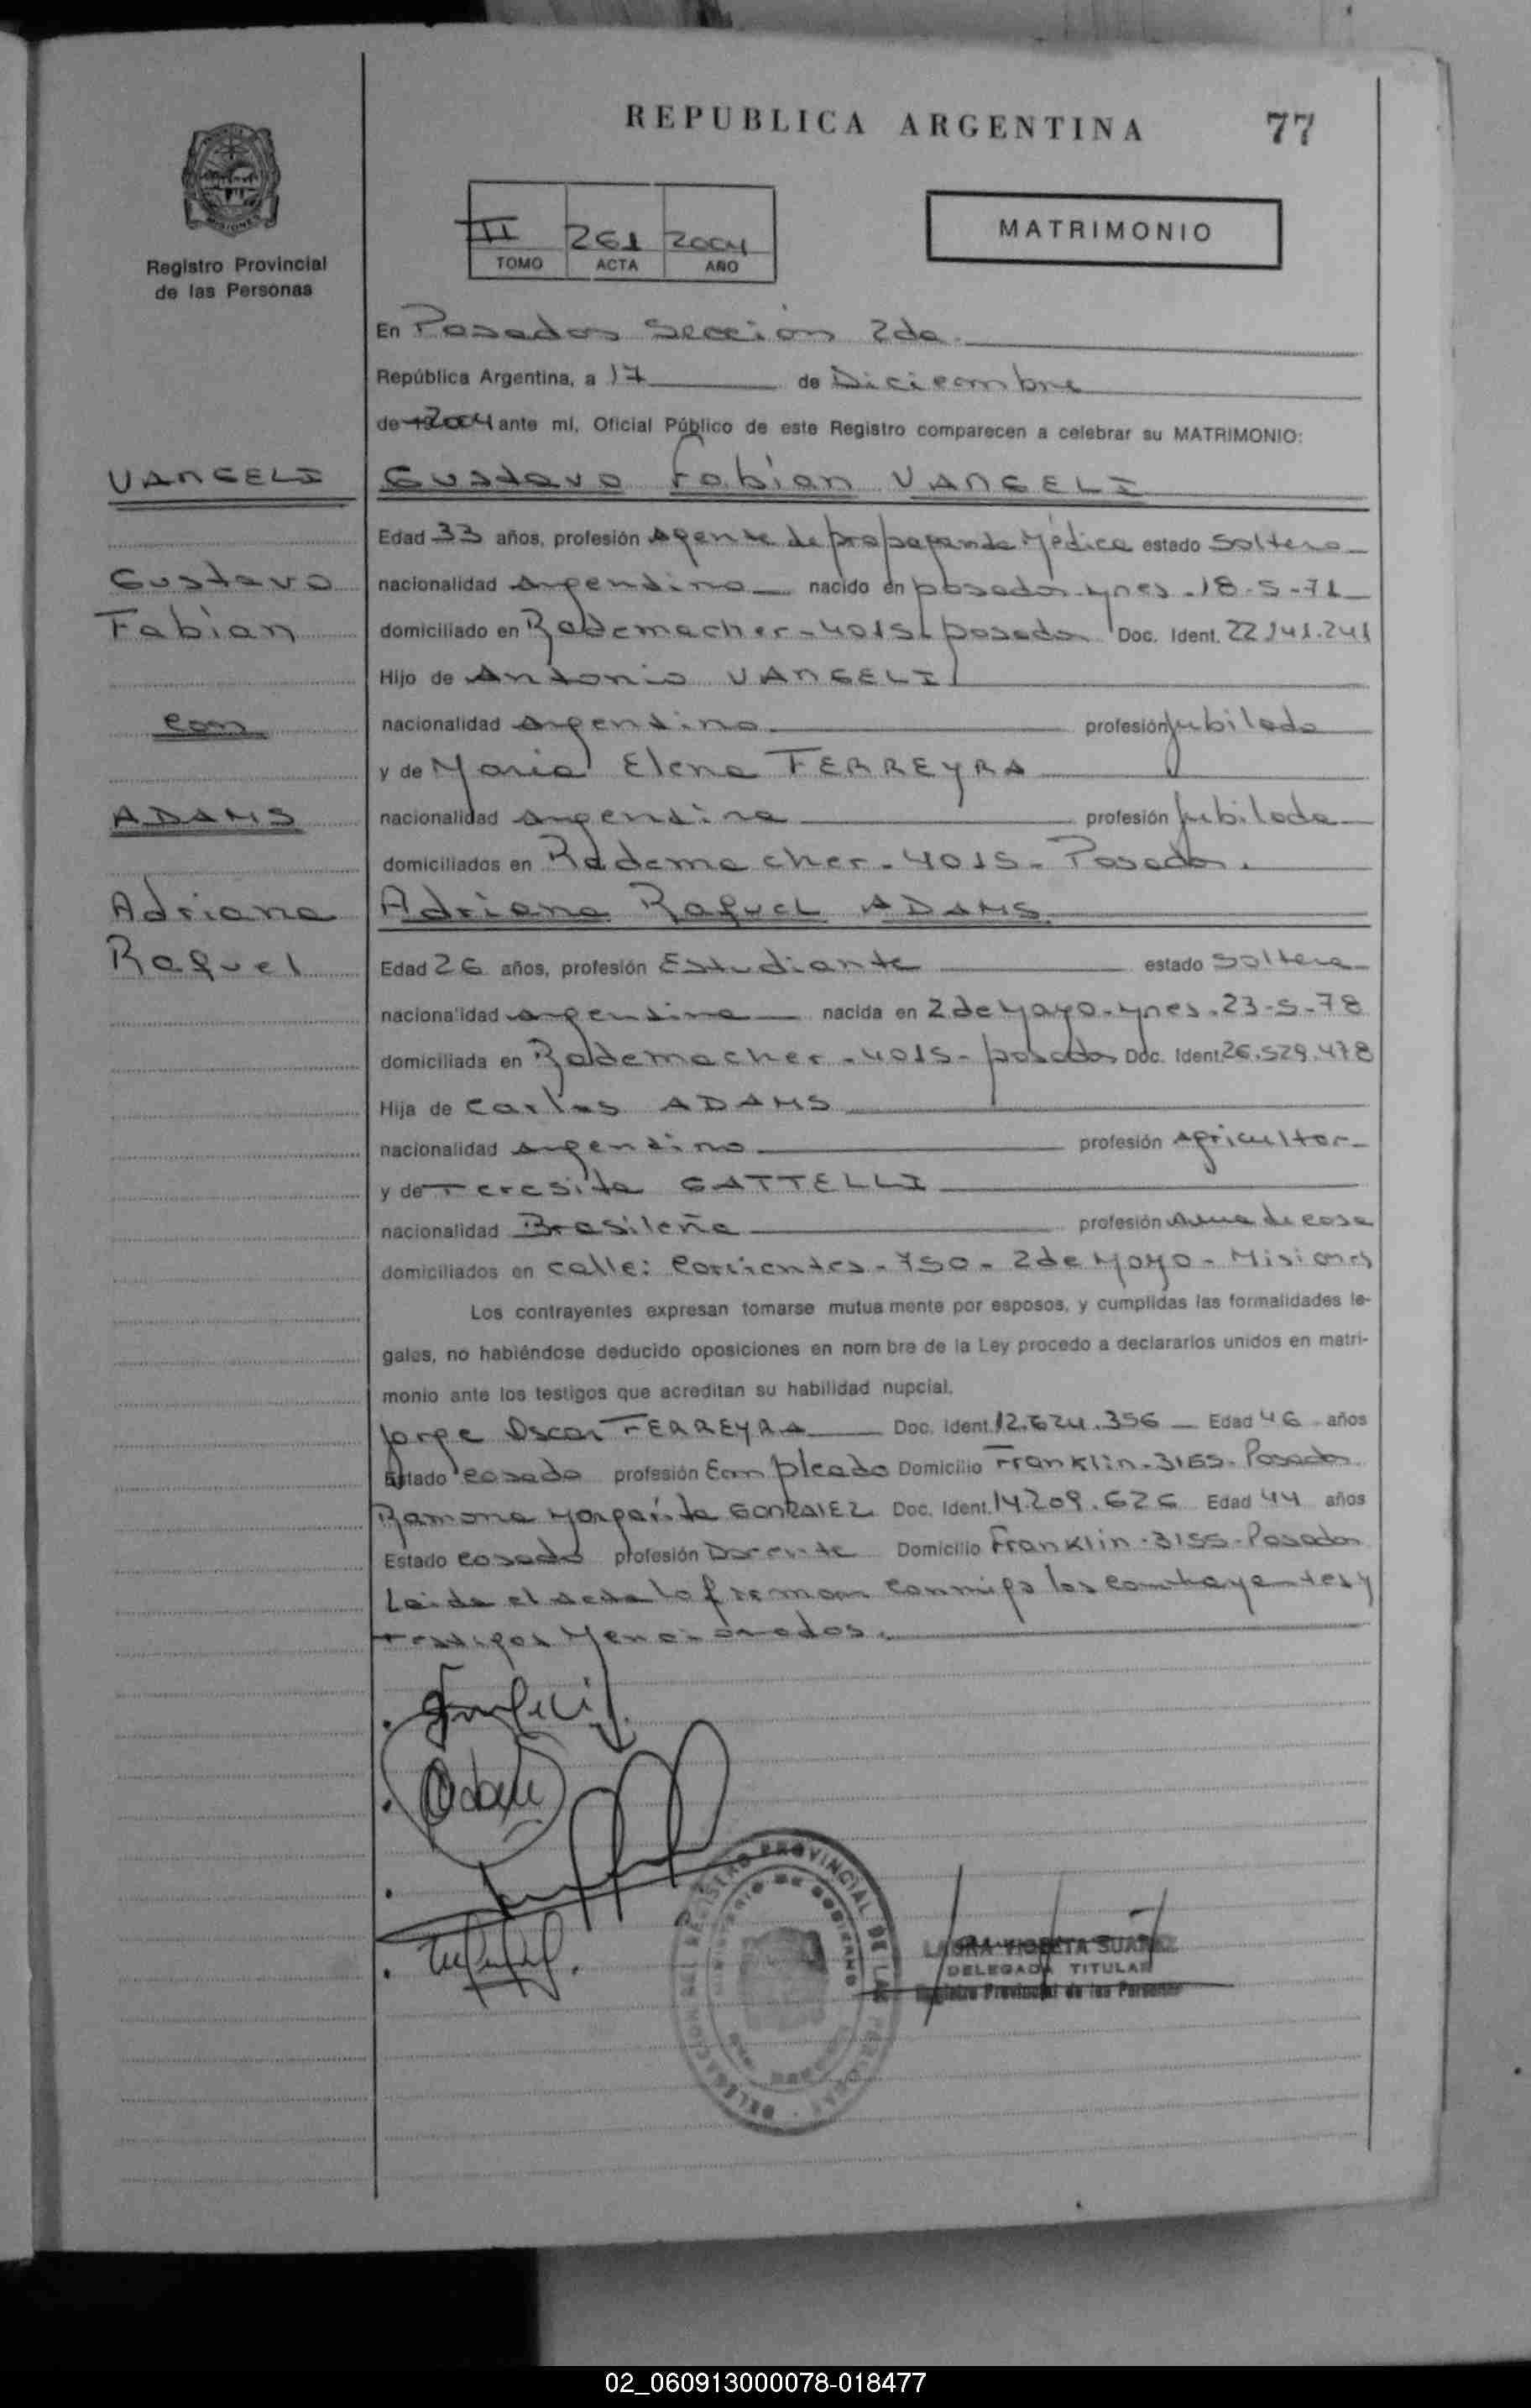 REPUBLICA ARGENTINA 77
III 261 2004
TOMO ACTA AÑO
MATRIMONIO
Registro Provincial
de las Personas
En Posadas Sección 2da.
República Argentina, a 17 de Diciembre
de 2004 ante mí, Oficial Público de este Registro comparecen a celebrar su MATRIMONIO:
VANGELI
Gustavo Fabian VANGELI
Edad 33 años, profesión Agente de propaganda Médica estado Soltero
Gustavo
nacionalidad Argentino nacido en posadas-Mnes-18-5-71
Fabian
domiciliado en Rademacher-4015-posadas Doc. Ident. 22.141.241
Hijo de Antonio VANGELI
con
nacionalidad Argentino profesión Jubilado
y de Maria Elena FERREYRA
ADAMS
nacionalidad Argentina profesión Jubilada
domiciliados en Rademacher-4015-Posadas.
Adriana
Adriana Raquel ADAMS
Raquel
Edad 26 años, profesión Estudiante estado Soltera
nacionalidad Argentina nacida en 2 de Mayo-Mnes-23-5-78
domiciliada en Rademacher-4015-posadas Doc. Ident. 26.529.478
Hija de Carlos ADAMS
nacionalidad Argentino profesión Agricultor
y de Teresita GATTELLI
nacionalidad Brasileña profesión Ama de casa
domiciliados en calle: Corrientes-750-2 de Mayo-Misiones
Los contrayentes expresan tomarse mutua mente por esposos, y cumplidas las formalidades le-
gales, no habiéndose deducido oposiciones en nom bre de la Ley procedo a declararlos unidos en matri-
monio ante los testigos que acreditan su habilidad nupcial.
Jorge Oscar FERREYRA Doc. Ident. 12.624.356 Edad 46 años
Estado casado profesión Empleado Domicilio Franklin-3155-Posadas
Ramona Margarita GONZALEZ Doc. Ident. 14.209.626 Edad 44 años
Estado casada profesión Docente Domicilio Franklin-3155-Posadas
Leida el acta la firman conmigo los contrayentes y
testigos Mencionados.
DELEGACION DEL REGISTRO PROVINCIAL DE LAS PERSONAS
MINISTERIO DE GOBIERNO
LAURA VIOLETA SUAREZ
DELEGADA TITULAR
Registro Provincial de las Personas
02_060913000078-018477